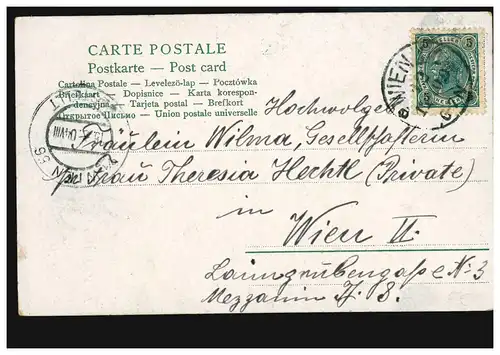 CARTE POSTALE
Postkarte — Post card
Cartolina Postale — Levelező-lap — Pocztówka
Briefkaart — Dopisnice — Karta korespon-
dencyjna — Tarjeta postal — Brefkort
Открытое Письмо — Union postale universelle
WIEN
5 5
Hochwolgeb
Fräulein Wilma, Gesellschafterin
Frau Theresia Hechtl (Private)
in
Wien II.
Laimgrubengaße No. 3
Mezzanin T. 8.